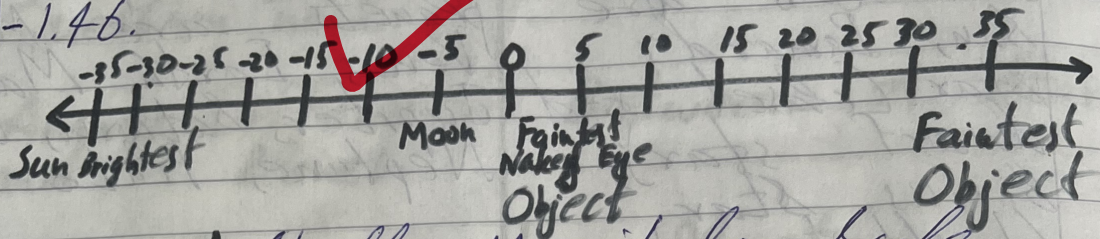 -1.46.
-35 -30 -25 -20 -15 -10 -5 0 5 10 15 20 25 30 .35
Sun Brightest Moon Faintest Faintest
Naked Eye Object
Object